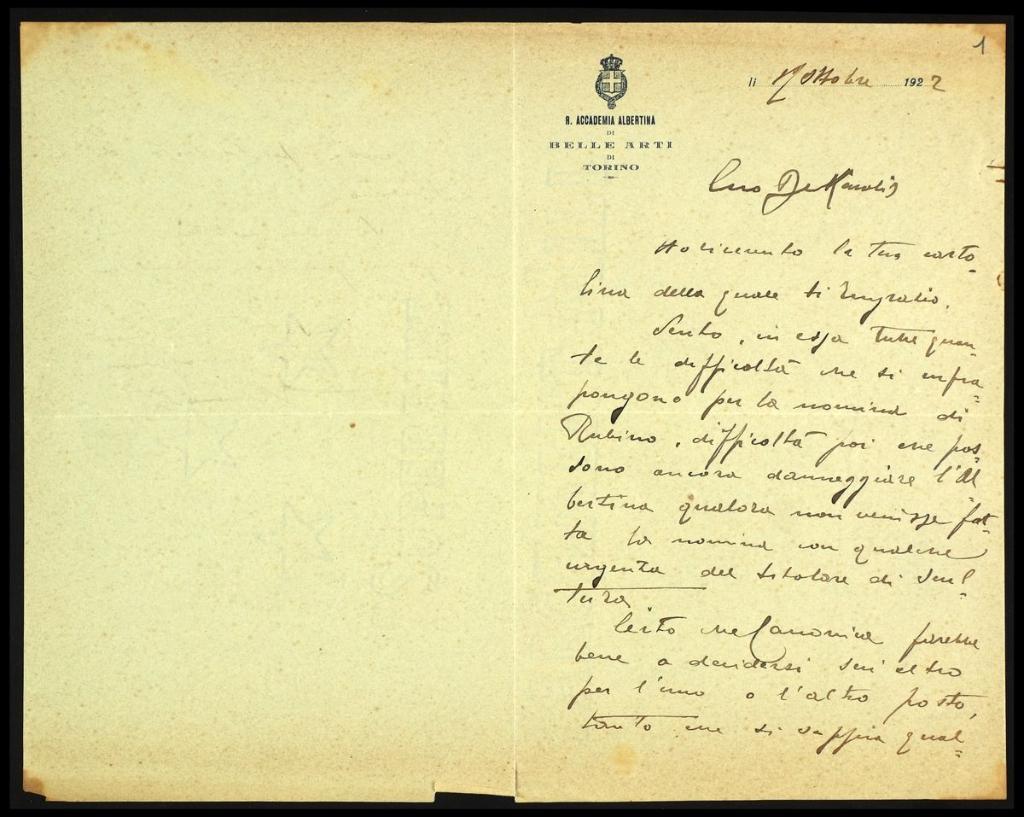 1
R. ACCADEMIA ALBERTINA
DI
BELLE ARTI
DI
TORINO
li Ottobre 1922
Caro De Karolis
Ho ricevuto la tua carto-
lina della quale ti ringrazio.
Sento, in essa tutte quan-
te le difficoltà che si infra
pongono per la nomina di
Rubino, difficoltà poi che pos-
sono ancora danneggiare l'Al
bertina qualora non venisse fat-
ta la nomina con qualche
urgenza del titolare di Scul-
tura
Certo che Canonica farebbe
bene a decidersi
per l'uno o l'altro posto,
tanto che si sappia qual-